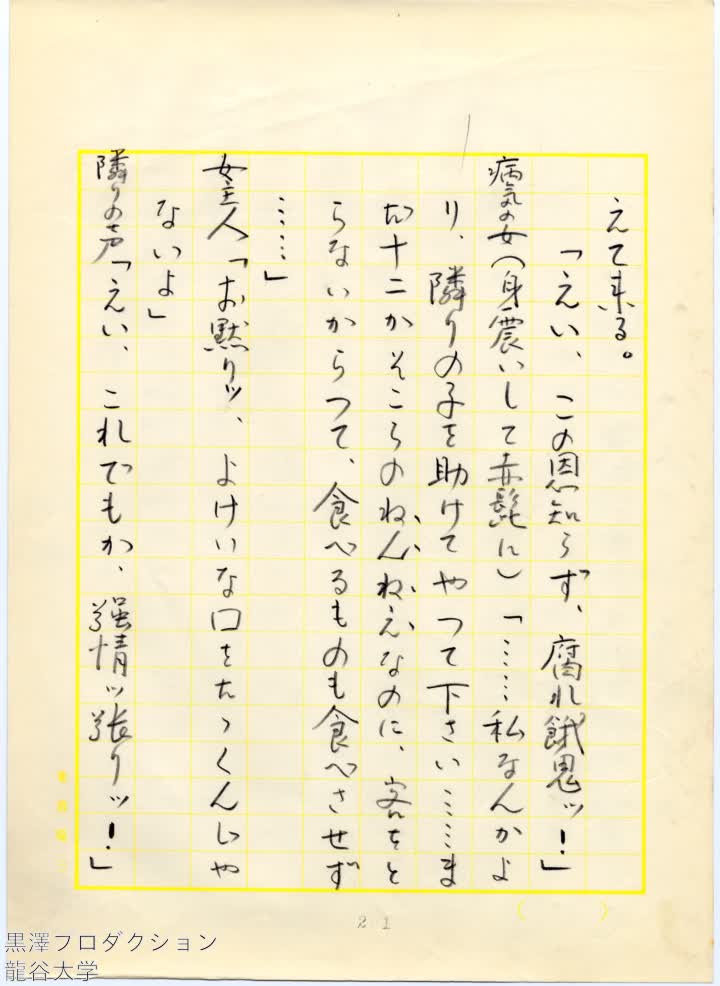 えて来る。
「えい、この恩知らず、腐れ餓鬼ッ!」
病気の女(身震いして赤髭に)「……私なんかよ
り、隣りの子を助けてやつて下さい……ま
だ十二かそこらのねんねえなのに、客をと
らないからつて、食べるものも食べさせず
……」
女主人「お黙りッ、よけいな口をたゝくんじや
ないよ」
隣りの声「えい、これでもか、強情ッ張りッ!」
21
黒澤プロダクション
龍谷大学